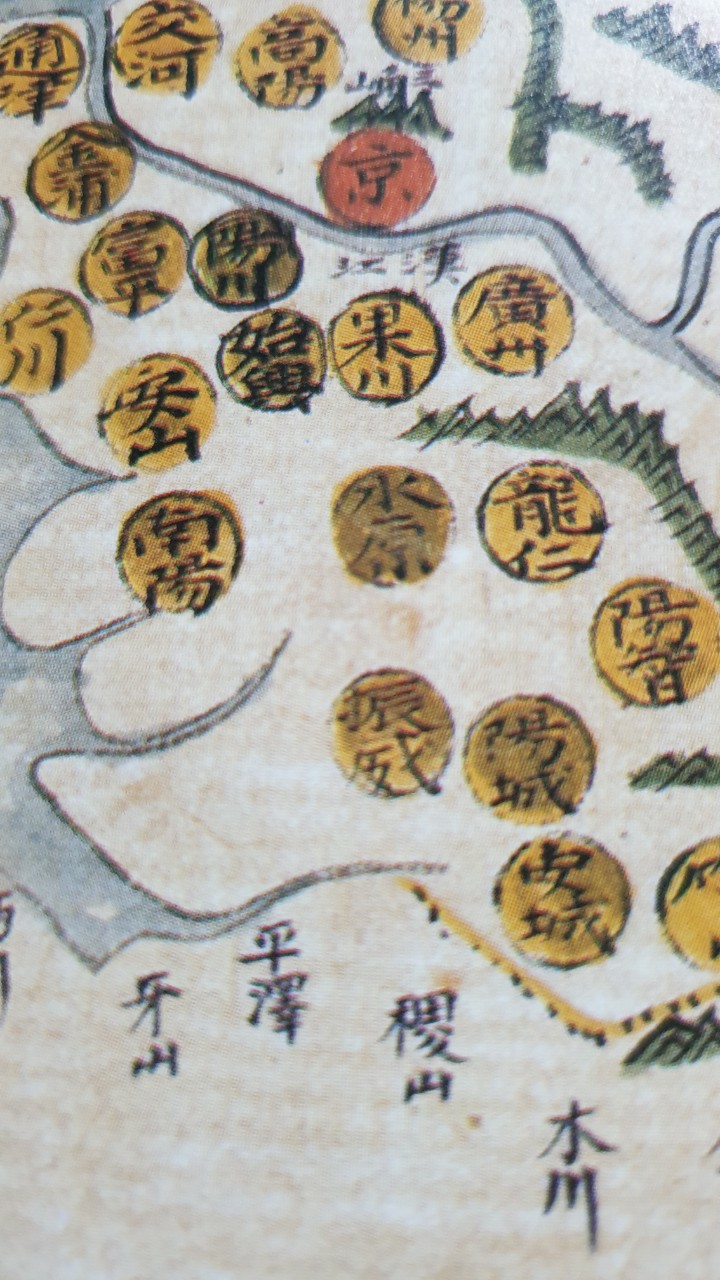 通津
交河
高陽
州
京
金浦
富平
陽川
漢江
仁川
始興
果川
廣州
安山
南陽
水原
龍仁
陽
振威
陽城
安城
平澤
牙山
稷山
木川